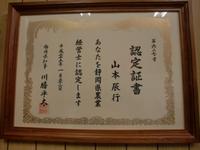 認定証書
山本辰行
あなたを静岡県農業
経営士に認定します
静岡県知事 川勝平太